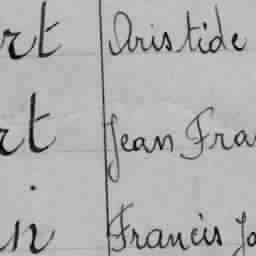 rt Aristide
rt Jean Fra
in Francis Jo